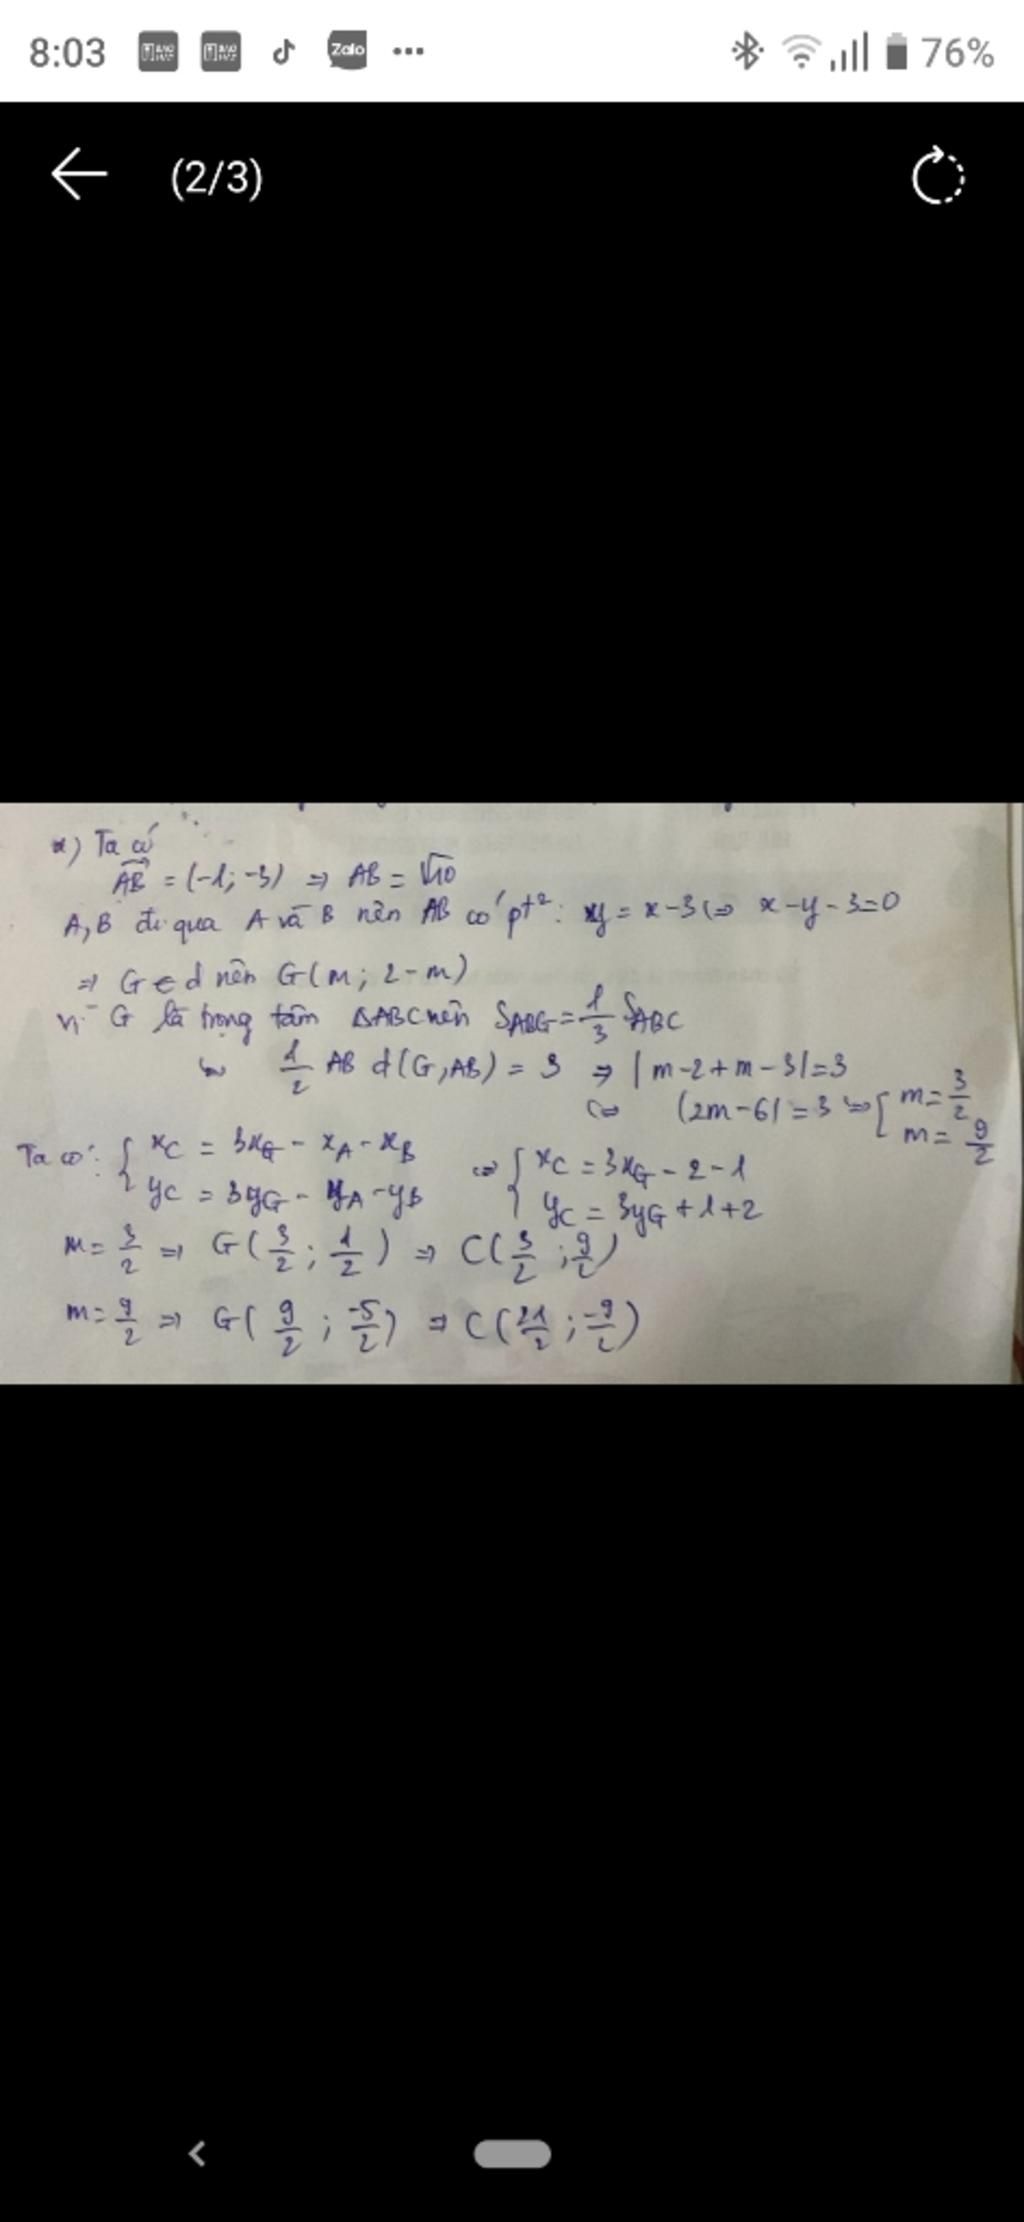 8:03 Zalo ... 76%
(2/3)
a) Ta có
AB = (-1; -3) ⇒ AB = √10
A, B đi qua A và B nên AB có pt²: y = x - 3 ⇔ x - y - 3 = 0
⇒ G ∈ d nên G(m; 2 - m)
Vì G là trọng tâm ΔABC nên S_ABG = 1/3 S_ABC
⇔ 1/2 AB d(G, AB) = 3 ⇒ |m - 2 + m - 3| = 3
⇔ |2m - 6| = 3 ⇔ [ m = 3/2
m = 9/2
Ta có: { x_C = 3x_G - x_A - x_B ⇔ { x_C = 3x_G - 2 - 1
y_C = 3y_G - y_A - y_B y_C = 3y_G + 1 + 2
m = 3/2 ⇒ G(3/2; 1/2) ⇒ C(3/2; 9/2)
m = 9/2 ⇒ G(9/2; -5/2) ⇒ C(21/2; -9/2)